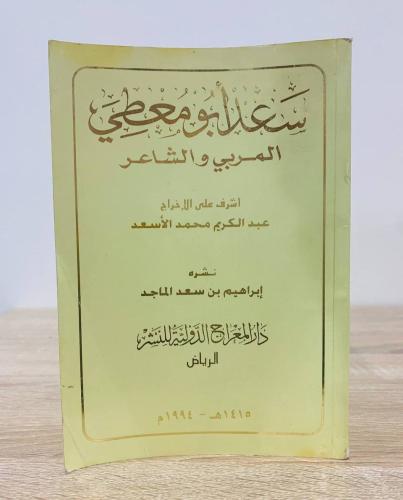 سَعد أبو معطي
المربي والشاعر
أشرف على الإخراج
عبد الكريم محمد الأسعد
نشره
إبراهيم بن سعد الماجد
دار المعراج الدولية للنشر
الرياض
١٤١٥هـ - ١٩٩٤م